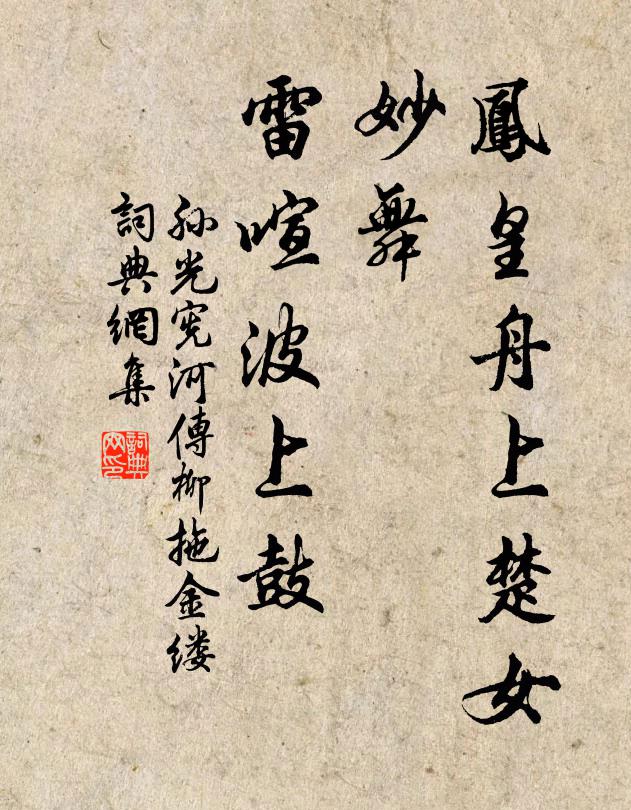 鳳皇舟上楚女
妙舞
雷喧波上鼓
孫光宪河傳柳拖金缕
詞典網集
詞典网印